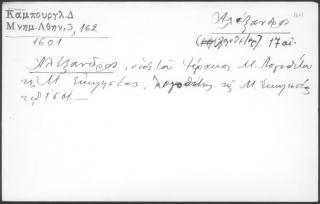 Καμπουργλ.Δ
Μνημ.Αθην.3, 162
1601
Αλέξανδρος
17 αι.
Αλέξανδρος, υιός του Ψύρακος Μ. Λογοθέτου
της Μ. Εκκλησίας, λογοθέτης της Μ Εκκλησίας
τω 1601.—